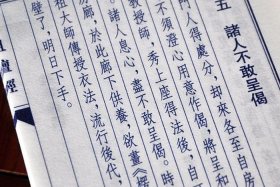 五　諸人不敢呈偈
門人得處分，却來各至自房
不須澄心用意作偈，將呈和
教授師，秀上座得法後，自
諸人息心，盡不敢呈偈。時
廊，於此廊下供養，欲畫《楞
祖大師傳授衣法，流行後代，
壁了，明日下手。
壇經